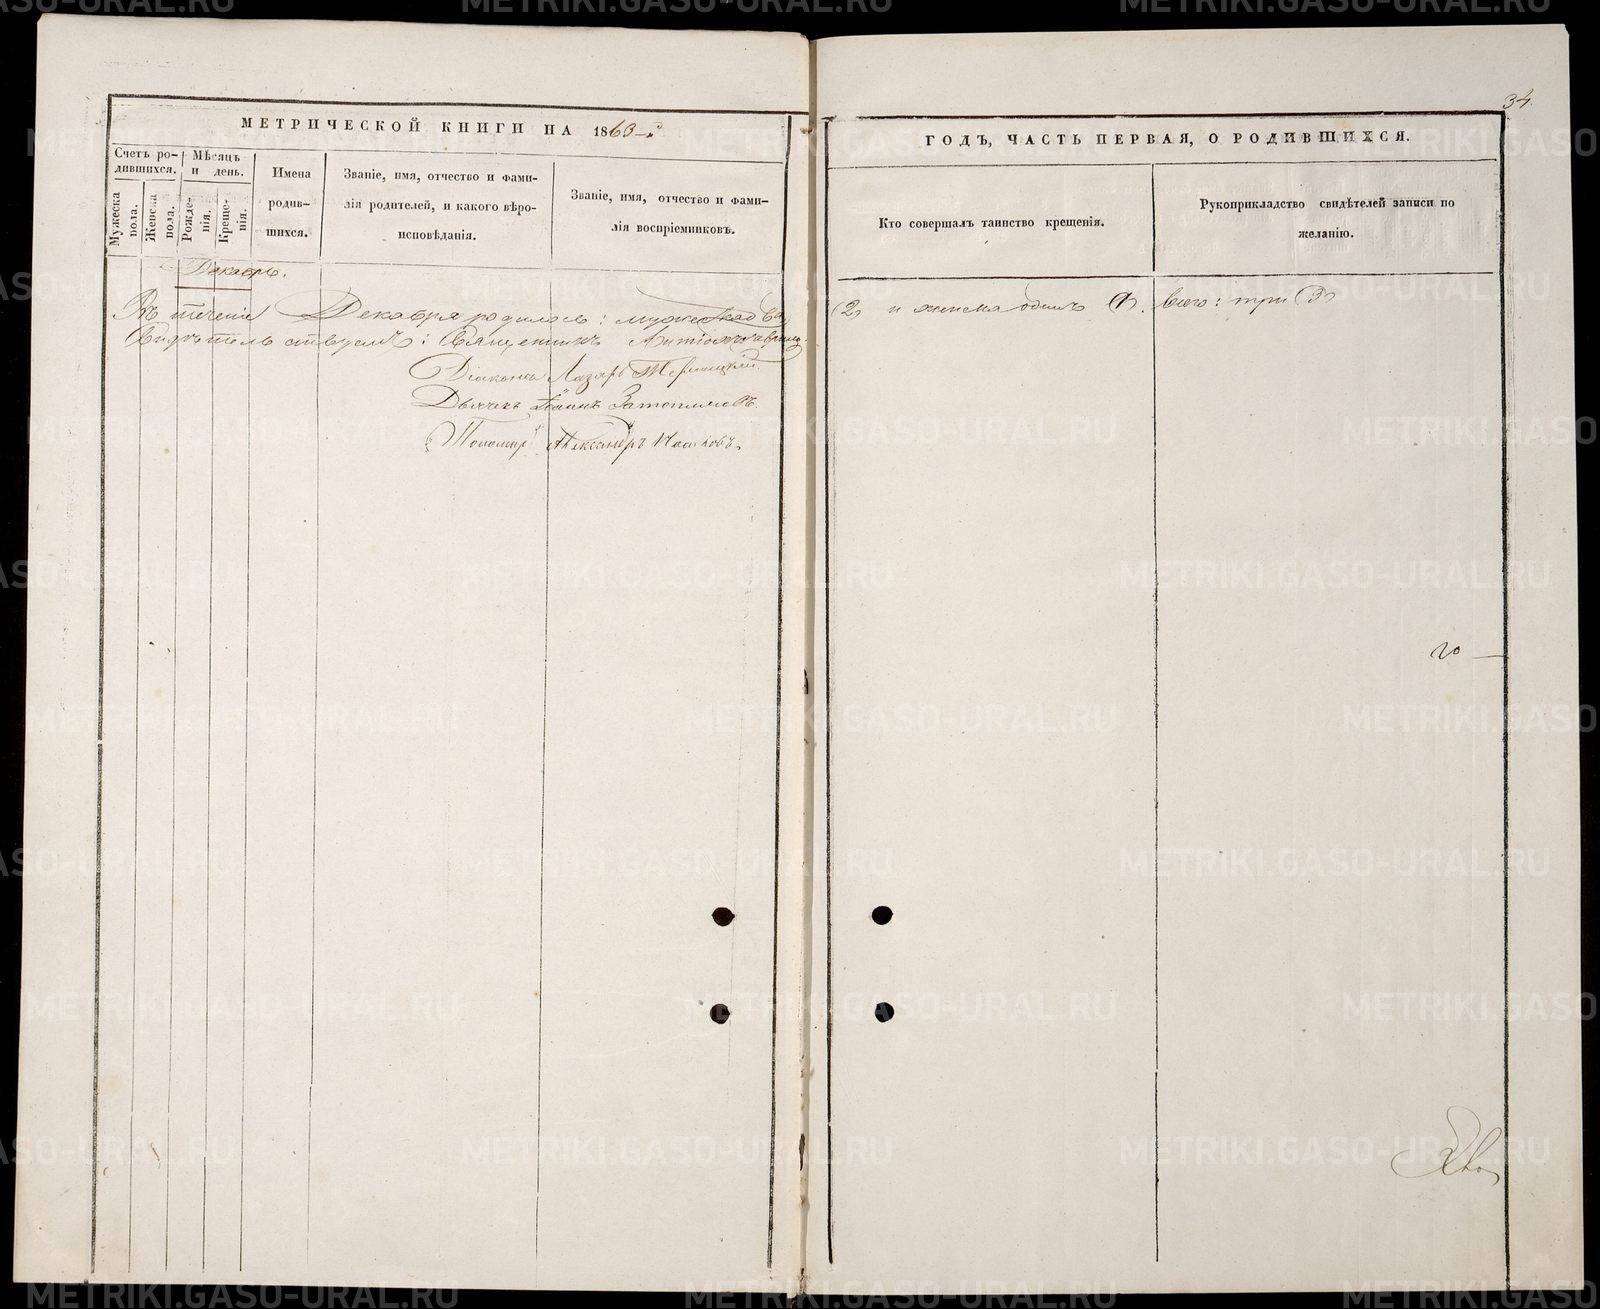 34
МЕТРИЧЕСКОЙ КНИГИ НА 1863
ГОДЪ, ЧАСТЬ ПЕРВАЯ, О РОДИВШИХСЯ.
Счетъ ро-
дившихся.
Мужеска
пола.
Женска
пола.
Мѣсяцъ
и день.
Рожде-
нія.
Креще-
нія.
Имена
родив-
шихся.
Званіе, имя, отчество и фами-
лія родителей, и какого вѣро-
исповѣданія.
Званіе, имя, отчество и фами-
лія воспріемниковъ.
Кто совершалъ таинство крещенія.
Рукоприкладство свидѣтелей записи по
желанію.
Декабрь.
Въ теченіе Декабря родилось: мужеска два
(2) и женска одинъ (1). Всего: три (3)
Священникъ
Діаконъ Лазарь
Дьячекъ Іоаннъ
Пономарь Александръ
METRIKI.GASO-URAL.RU